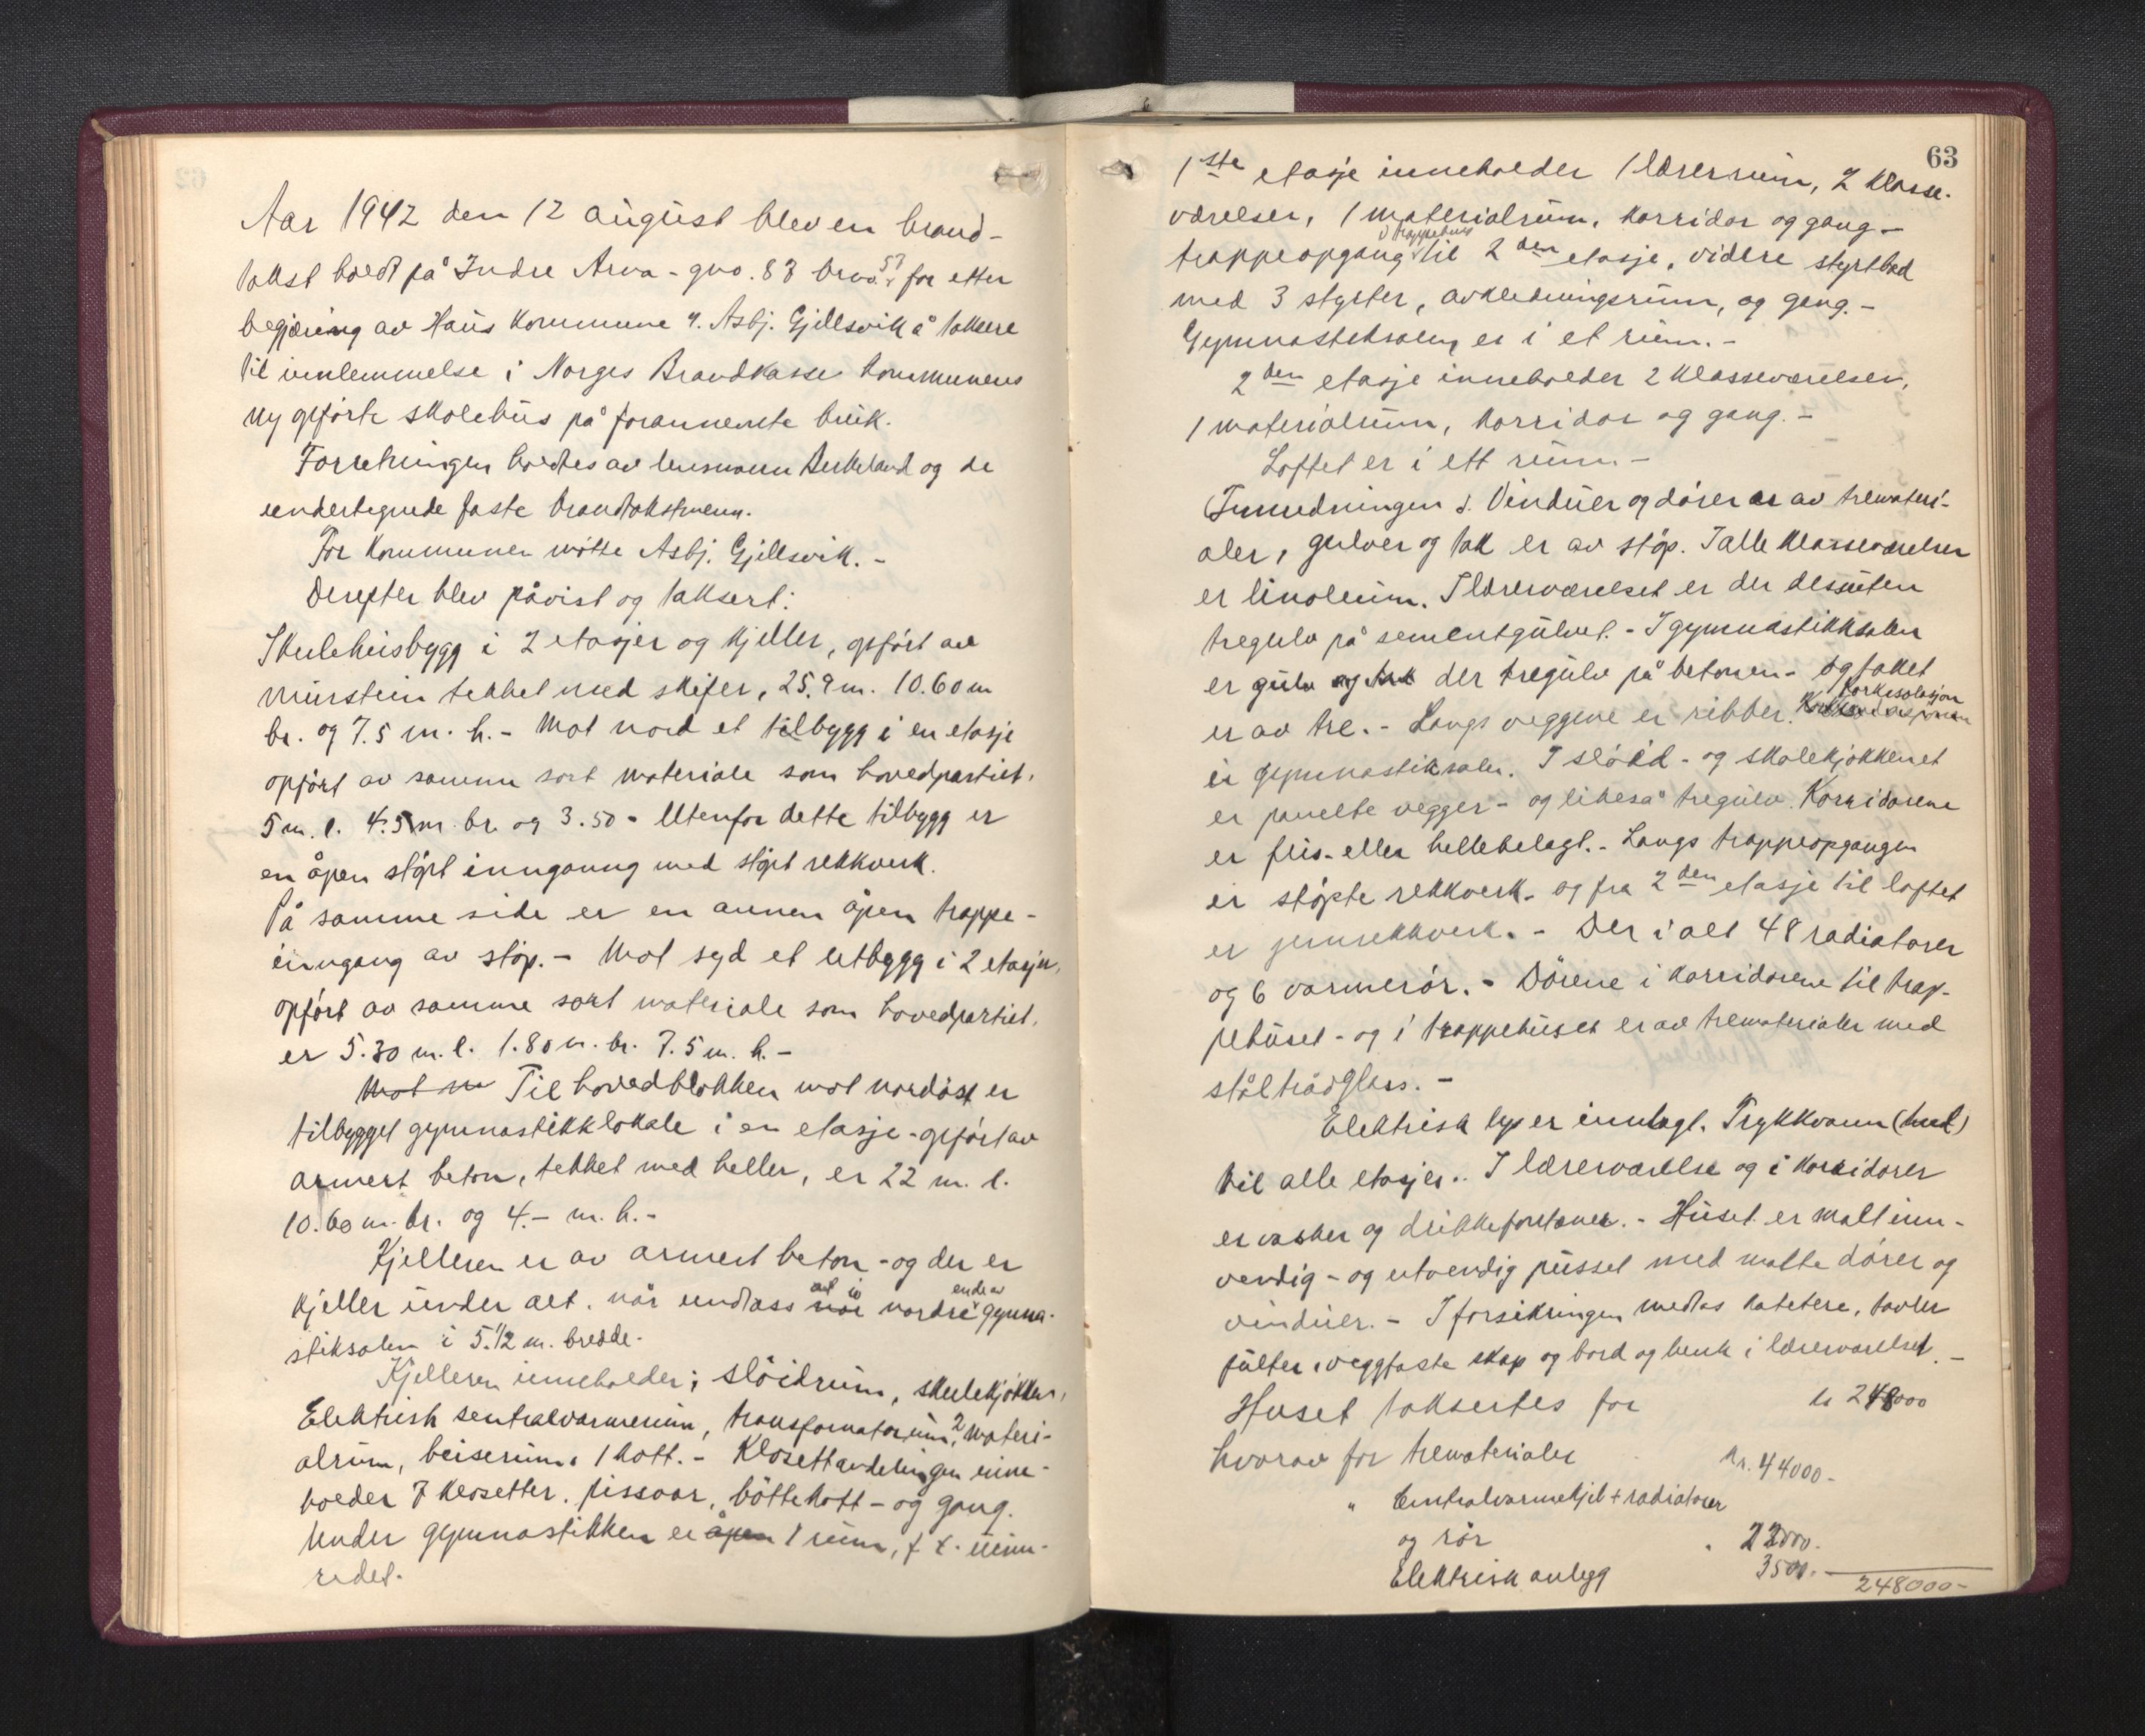 Aar 1942 den 12 august blev en brand-
takst holdt på Indre Arna - gno. 83 brno. 57 for etter
begjæring av Haus kommune v. Asbj. Gjellsvik å taksere
til innlemmelse i Norges Brandkasse kommunens
ny opførte skolehus på forannevnte bruk.
Forretningen holdtes av lensmann Birkeland og de
undertegnede faste brandtakstmenn.
For kommunen møtte Asbj. Gjellsvik. -
Derefter blev påvist og taksert:
Skulehusbygg i 2 etasjer og kjeller, opført av
murstein tekket med skifer, 25.9 m. 10.60 m
br. og 7.5 m. h. - Mot nord et tilbygg i en etasje
opført av samme sort materiale som hovedpartiet.
5 m. l. 4.5 m. br. og 3.50 - Utenfor dette tilbygg er
en åpen støpt inngang med støpt rekkverk.
På samme side er en annen åpen trappe-
inngang av støp. - Mot syd et utbygg i 2 etasjer,
opført av samme sort materiale som hovedpartiet,
er 5.30 m. l. 1.80 m. br. 7.5 m. h. -
Mot no Til hovedblokken mot nordøst er
tilbygget gymnastikklokale i en etasje - opført av
armert beton, tekket med heller, er 22 m. l.
10.60 m. br. og 4.- m. h. -
Kjelleren er av armert beton - og der er
kjeller under alt. når undtass nordre ende av gymna-
stiksalen i 5.1/2 m. bredde.
Kjelleren inneholder; slöidrum, skulekjøkken,
Elektrisk sentralvarmerum, transformatorrum, 2 materi-
alrum, beiserum, 1 kott. - Klosettavdelingen inne-
holder 7 klosetter, pissoar, böttekott - og gang.
Under gymnastikken er åpen 1 rum, f. t. uinn-
redet.
63
1ste etasje inneholder 1 lærerrum, 2 klasse-
værelser, 1 materialrum, korridor og gang -
trappeopgang v trappehus til 2den etasje, videre styrtbad
med 3 styrter, avkledningsrum, og gang. -
Gymnastiksalen er i et rum. -
2den etasje inneholder 2 klasseværelser,
1 materialrum, korridor og gang. -
Loftet er i ett rum. -
Innredningen s. Vinduer og dörer er av tremateri-
aler, gulver og tak er av støp. I alle klasseværelser
er linoleum. I lærerværelset er der desuten
tregulv på sementgulvet. - I gymnastikksalen
er gulv og tak der tregulv på betonen - og taket
er av tre. - Langs veggene er ribber. Korkisolasjon
er gymnastiksalen. I slöid - og skolekjøkkenet
er panelte vegger - og likeså tregulv. Korridorene
er flis- eller hellebelagt. - Langs trappeopgangen
er støpte rekkverk - og fra 2den etasje til loftet
er jernrekkverk. - Der i alt 48 radiatorer
og 6 varmerör. - Dörene i korridorene til trap-
pehuset - og i trappehuset er av trematerialer med
ståltrådglass. -
Elektrisk lys er innlagt. Trykkvann (vel)
til alle etasjer. I lærerværelse og i korridorer
er vasker og drikkefontener. - Huset er malt inn-
vendig - og utvendig pusset med malte dörer og
vinduer. - I forsikringen medtas katetere, tavler
pulter, veggfaste skap og bord og benk i lærerværelset. -
Huset taksertes for kr 248000
hvorav for trematerialer kr. 44000.-
" Centralvarmekjel + radiatorer
og rör " 22000.-
Elektrisk anlegg 3500.-
248000-